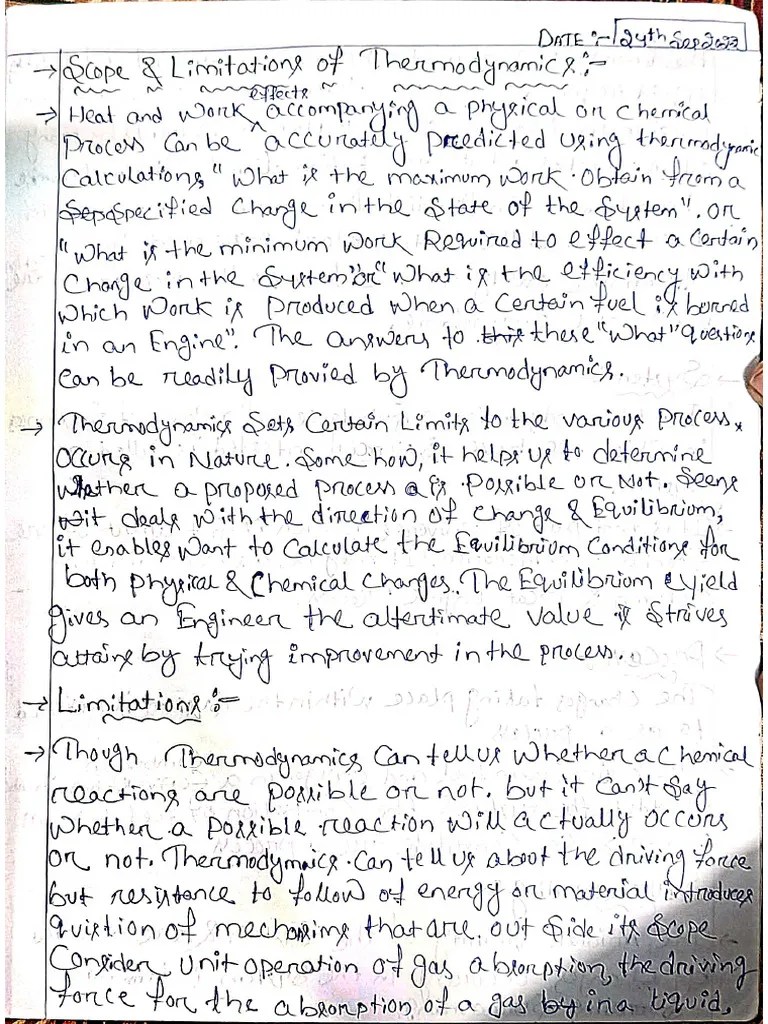 DATE :- 24th Sep 2023
→ Scope & Limitations of Thermodynamics :-
→ Heat and Work effects accompanying a physical or chemical
Process Can be accurately predicted using thermodynamic
Calculations, "What is the maximum work obtain from a
Specified Change in the State of the System". or
"What is the minimum work Required to effect a Certain
Change in the System" or "What is the efficiency with
which Work is Produced when a Certain fuel is burned
in an Engine". The answers to this these "What" question
Can be readily Provied by Thermodynamics.
→ Thermodynamics Sets Certain Limits to the various Process
Occurs in Nature. Some how, it helps us to determine
Whether a proposed process is Possible or Not. Seens
it deals with the direction of Change & Equilibrium,
it enables Want to Calculate the Equilibrium Conditions for
both Physical & Chemical Changes. The Equilibrium yield
gives an Engineer the altertimate value is Strives
attains by trying improvement in the process.
→ Limitations :-
→ Though Thermodynamics Can tell us Whether a Chemical
reactions are possible or not. but it Can't Say
Whether a possible reaction will actually occurs
or not. Thermodymaics Can tell us aboot the driving force
but resistance to follow of energy or material introduces
quistion of mechanisms that are out Side its Scope
Consider Unit operation of gas absorption, the driving
force for the absorption of a gas by in a liquid,